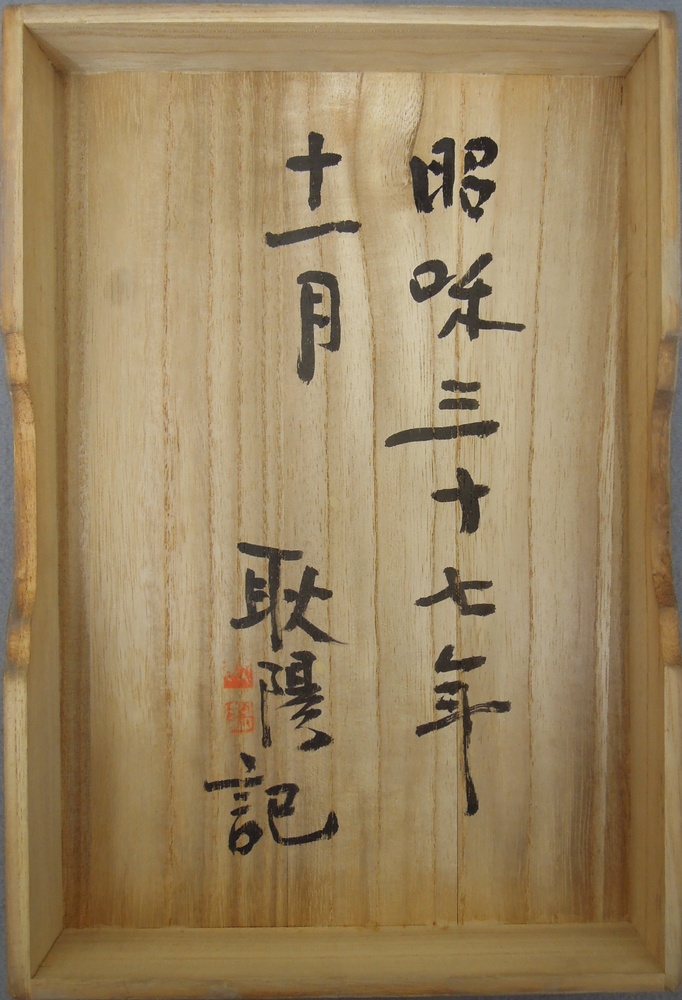 昭咊三十七年
十一月
耿陽記